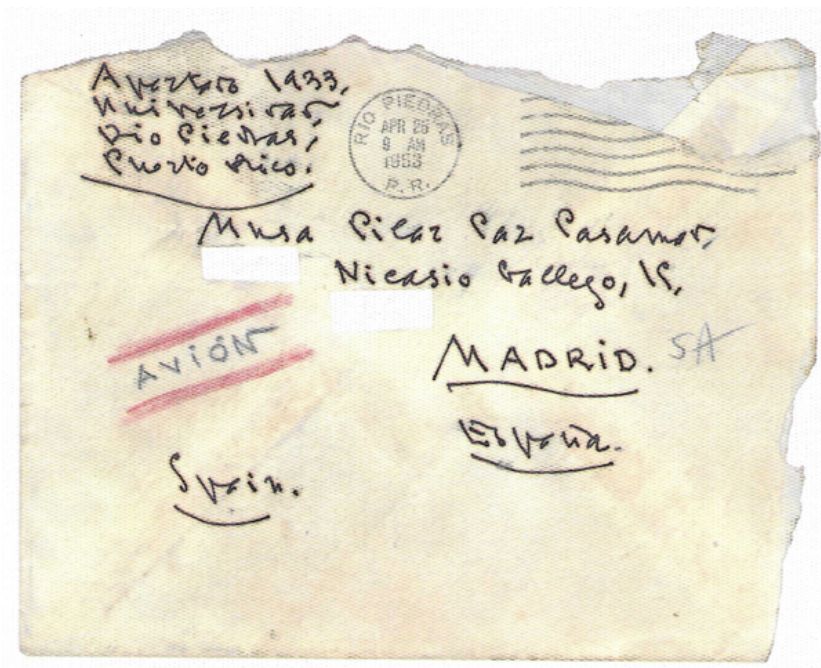 Apartado 1933,
Universidad,
Rio Piedras,
Puerto Rico.
RÍO PIEDRAS
APR 26
9 AM
1953
P.R.
Pilar Paz Pasamar,
Nicasio Gallego, 15,
AVIÓN
MADRID.
SA
España.
Spain.